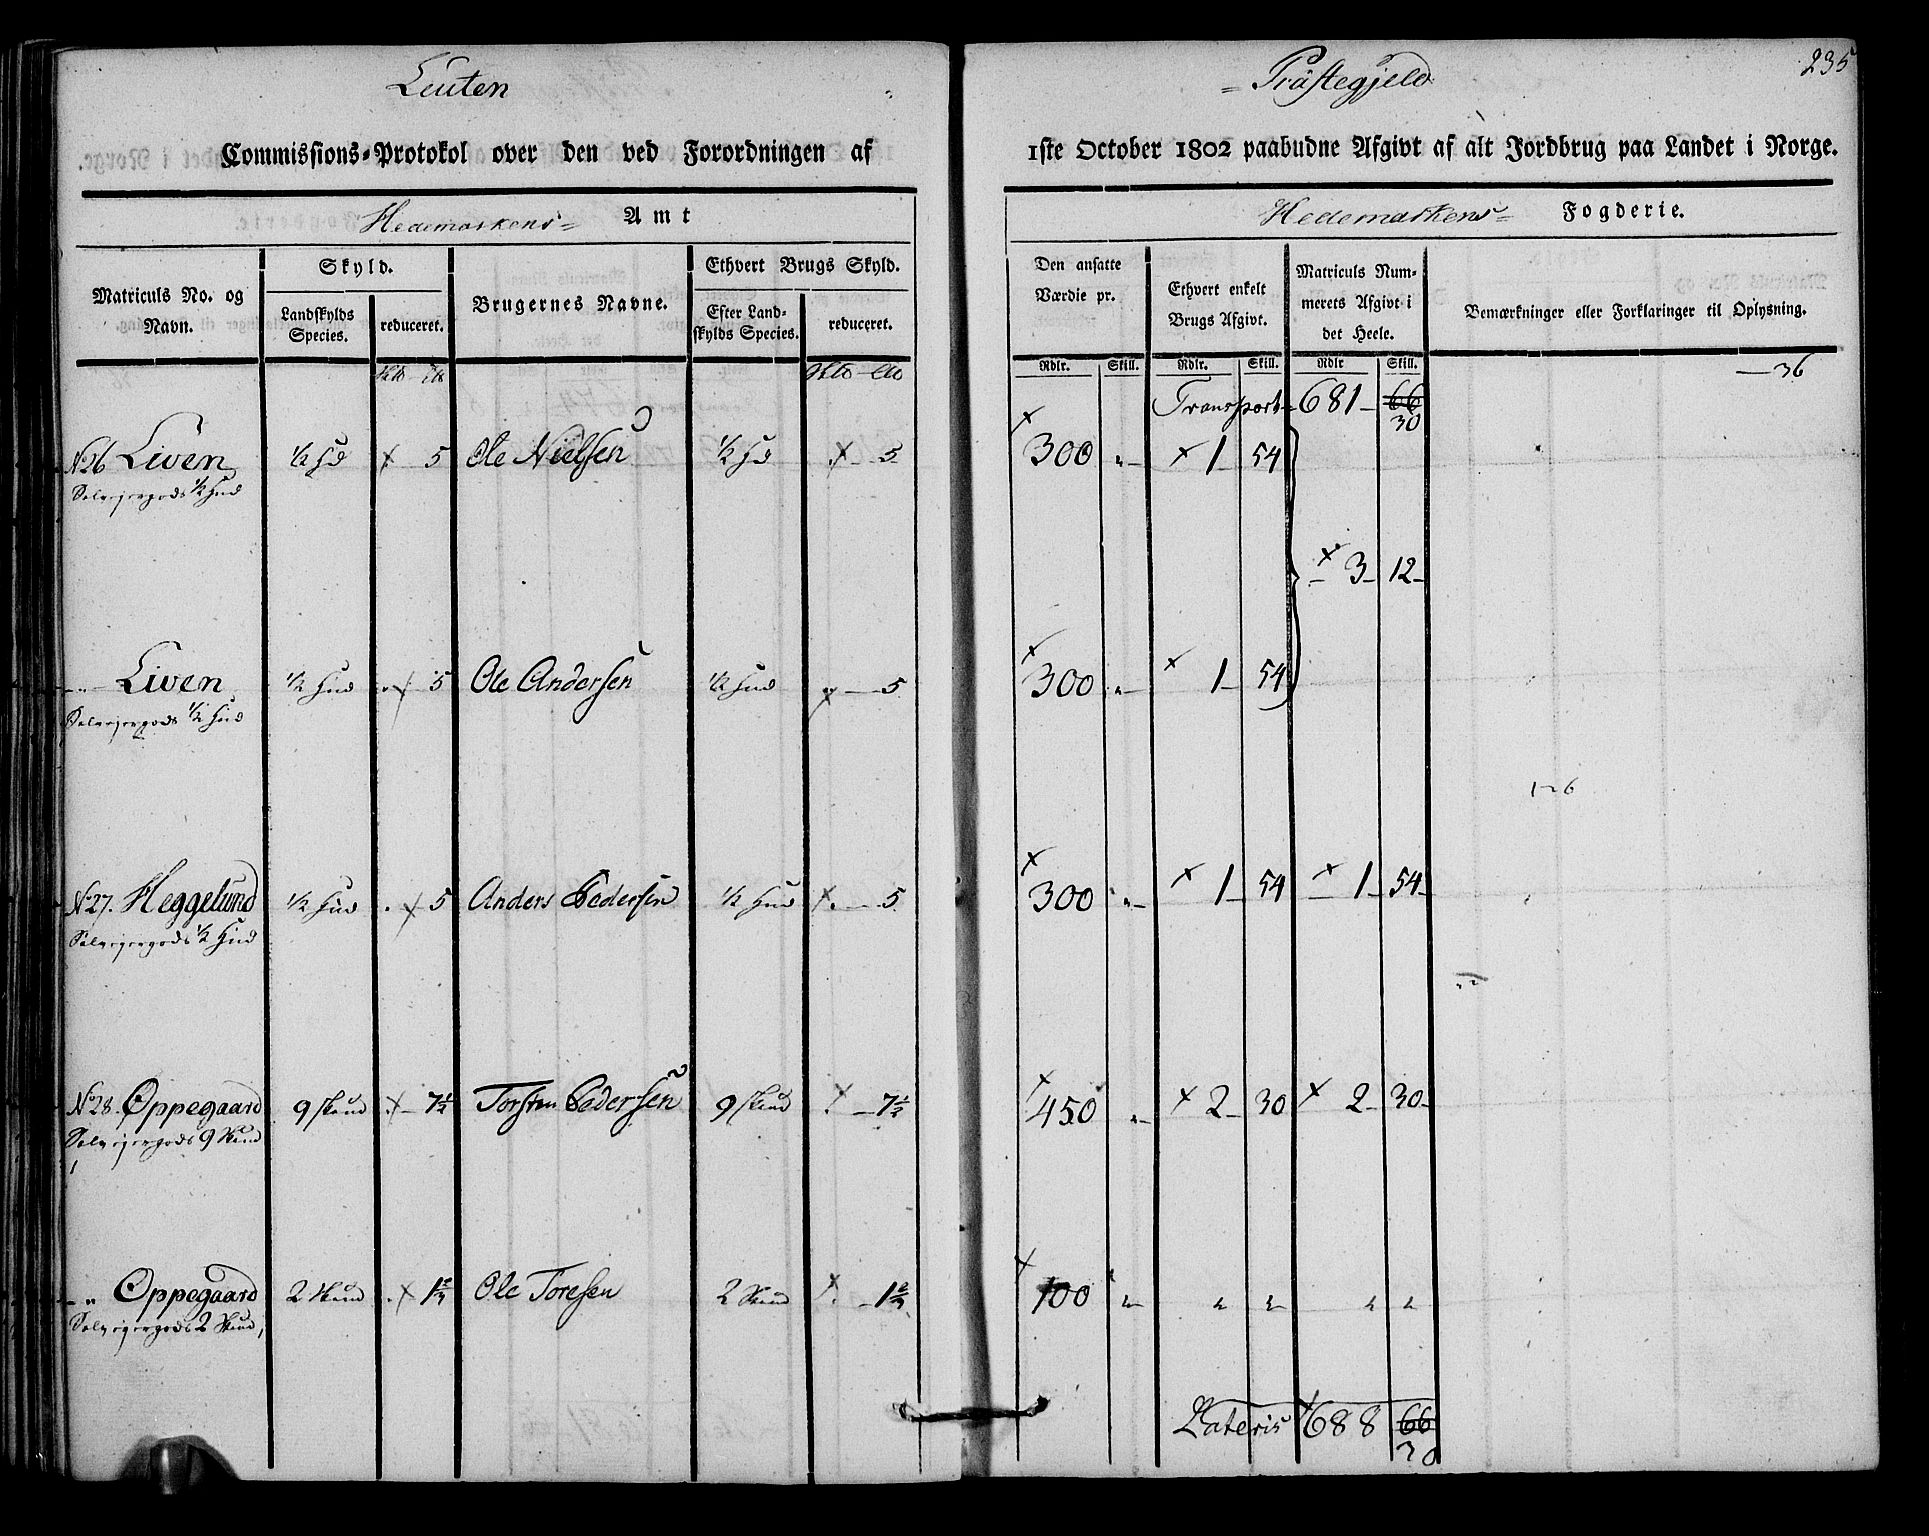 Leuten
= Præstegjeld
235
Commissions-Protokol over den ved Forordningen af
1ste October 1802 paabudne Afgivt af alt Jordbrug paa Landet i Norge.
Hedemarkens= Amt
Hedemarkens= Fogderie.
Matriculs No. og Navn.
Skyld.
Landskylds Species.
reduceret.
Brugernes Navne.
Ethvert Brugs Skyld.
Efter Landskylds Species.
reduceret.
Den ansatte Værdie pr.
Ethvert enkelt Brugs Afgivt.
Matriculs Nummerets Afgivt i det Heele.
Bemærkninger eller Forklaringer til Oplysning.
Rdlr. Skill. Rdlr. Skill. Rdlr Skill.
— 36
Transport 681 66
30
No 26 Liven ½ Hd 5 Ole Nielsen ½ Hd 5 300 " 1 54
Selvejergods ½ Hud
3 12
" Liven ½ Hud 5 Ole Andersen ½ Hud 5 300 " 1 54
Selvejergods ½ Hud
1-6
No 27. Heggelund ½ Hud 5 Anders Pedersen ½ Hud 5 300 " 1 54 1 54
Selvejergods ½ Hud
No 28. Oppegaard 9 Skind 7½ Torsten Pedersen 9 Skind 7½ 450 " 2 30 2 30
Selvejergods 9 Skind
" Oppegaard 2 Skind 1⅔ Ole Toresen 2 Skind 1⅔ 100 " " " " "
Selvejergods 2 Skind
Lateris 688 66
30